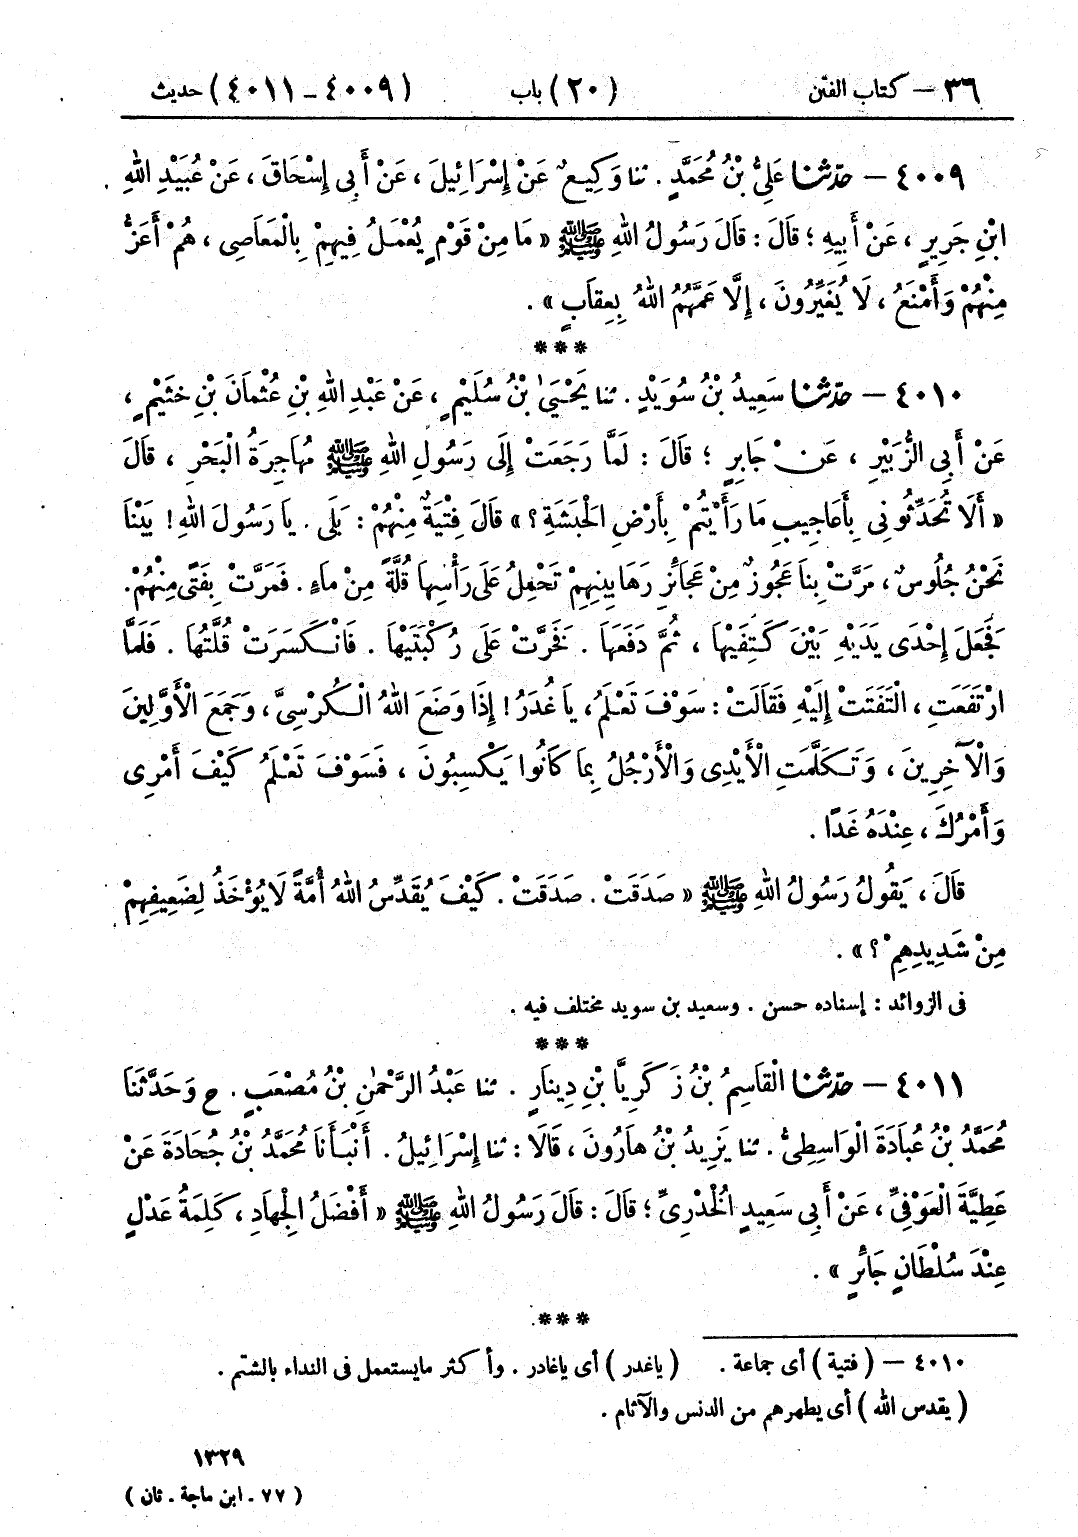 ٣٦ — كتاب الفتن (٢٠) باب (٤٠٠٩ - ٤٠١١) حديث
٤٠٠٩ — حَدَّثَنَا عَلِيُّ بْنُ مُحَمَّدٍ . ثنا وَكِيعٌ عَنْ إِسْرَائِيلَ ، عَنْ أَبِى إِسْحَاقَ ، عَنْ عُبَيْدِ اللهِ
ابْنِ جَرِيرٍ ، عَنْ أَبِيهِ ؛ قَالَ : قَالَ رَسُولُ اللهِ ﷺ « مَا مِنْ قَوْمٍ يُعْمَلُ فِيهِمْ بِالْمَعَاصِى ، هُمْ أَعَزُّ
مِنْهُمْ وَأَمْنَعُ ، لَا يُغَيِّرُونَ ، إِلَّا عَمَّهُمُ اللهُ بِعِقَابٍ » .
* * *
٤٠١٠ — حَدَّثَنَا سَعِيدُ بْنُ سُوَيْدٍ . ثنا يَحْيَىٰ بْنُ سُلَيْمٍ ، عَنْ عَبْدِ اللهِ بْنِ عُثْمَانَ بْنِ خَثَيْمٍ ،
عَنْ أَبِى الزُّبَيْرِ ، عَنْ جَابِرٍ ؛ قَالَ : لَمَّا رَجَعَتْ إِلَى رَسُولِ اللهِ ﷺ مُهَاجِرَةُ الْبَحْرِ ، قَالَ
« أَلَا تُحَدِّثُونِى بِأَعَاجِيبِ مَا رَأَيْتُمْ بِأَرْضِ الْحَبَشَةِ ؟ » قَالَ فِتْيَةٌ مِنْهُمْ : بَلَى . يَا رَسُولَ اللهِ ! بَيْنَا
نَحْنُ جُلُوسٌ ، مَرَّتْ بِنَا عَجُوزٌ مِنْ عَجَائِزِ رَهَابِينِهِمْ تَحْمِلُ عَلَى رَأْسِهَا قُلَّةً مِنْ مَاءٍ . فَمَرَّتْ بِفَتًى مِنْهُمْ .
فَجَعَلَ إِحْدَى يَدَيْهِ بَيْنَ كَتِفَيْهَا ، ثُمَّ دَفَعَهَا . فَخَرَّتْ عَلَى رُكْبَتَيْهَا . فَانْكَسَرَتْ قُلَّتُهَا . فَلَمَّا
ارْتَفَعَتِ ، الْتَفَتَتْ إِلَيْهِ فَقَالَتْ : سَوْفَ تَعْلَمُ ، يَا غُدَرُ ! إِذَا وَضَعَ اللهُ الْكُرْسِىَّ ، وَجَمَعَ الْأَوَّلِينَ
وَالْآخِرِينَ ، وَتَكَلَّمَتِ الْأَيْدِى وَالْأَرْجُلُ بِمَا كَانُوا يَكْسِبُونَ ، فَسَوْفَ تَعْلَمُ كَيْفَ أَمْرِى
وَأَمْرُكَ ، عِنْدَهُ غَدًا .
قَالَ ، يَقُولُ رَسُولُ اللهِ ﷺ « صَدَقَتْ . صَدَقَتْ . كَيْفَ يُقَدِّسُ اللهُ أُمَّةً لَا يُؤْخَذُ لِضَعِيفِهِمْ
مِنْ شَدِيدِهِمْ ؟ » .
فى الزوائد : إسناده حسن . وسعيد بن سويد مختلف فيه .
* * *
٤٠١١ — حَدَّثَنَا الْقَاسِمُ بْنُ زَكَرِيَّا بْنِ دِينَارٍ . ثنا عَبْدُ الرَّحْمٰنِ بْنُ مُصْعَبٍ . ح وَحَدَّثَنَا
مُحَمَّدُ بْنُ عُبَادَةَ الْوَاسِطِىُّ . ثنا يَزِيدُ بْنُ هَارُونَ ، قَالَا : ثنا إِسْرَائِيلُ . أَنْبَأَنَا مُحَمَّدُ بْنُ جُحَادَةَ عَنْ
عَطِيَّةَ الْعَوْفِىِّ ، عَنْ أَبِى سَعِيدٍ الْخُدْرِىِّ ؛ قَالَ : قَالَ رَسُولُ اللهِ ﷺ « أَفْضَلُ الْجِهَادِ ، كَلِمَةُ عَدْلٍ
عِنْدَ سُلْطَانٍ جَائِرٍ » .
* * *
٤٠١٠ — ( فتية ) أى جماعة . ( ياغدر ) أى ياغادر . وأكثر مايستعمل فى النداء بالشتم .
( يقدس الله ) أى يطهرهم من الدنس والآثام .
١٣٢٩
( ٧٧ - ابن ماجة - ثان )